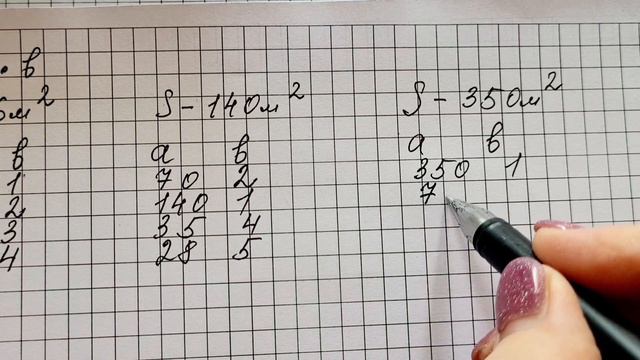 · в
6м²
в
1
2
3
4
S - 140м²
а в
70 2
140 1
35 4
28 5
S - 350м²
а в
350 1
7